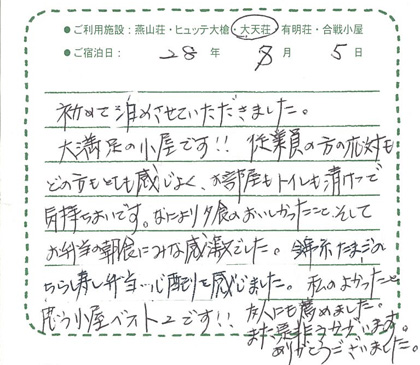 ●ご利用施設：燕山荘・ヒュッテ大槍・大天荘・有明荘・合戦小屋
●ご宿泊日： 28 年 8 月 5 日
初めて泊めさせていただきました。
大満足の小屋です!! 従業員の方の応対も
どの方もとても感じよく、お部屋もトイレも清けつで
気持ちよいです。なにより夕食のおいしかったこと、そして
お弁当の朝食にみな感激でした。錦糸たまごの
ちらし寿し弁当…心配りを感じました。私のよかったと
思う小屋ベスト2です!!
友人にも薦めました。
また是非うかがいます。
ありがとうございました。